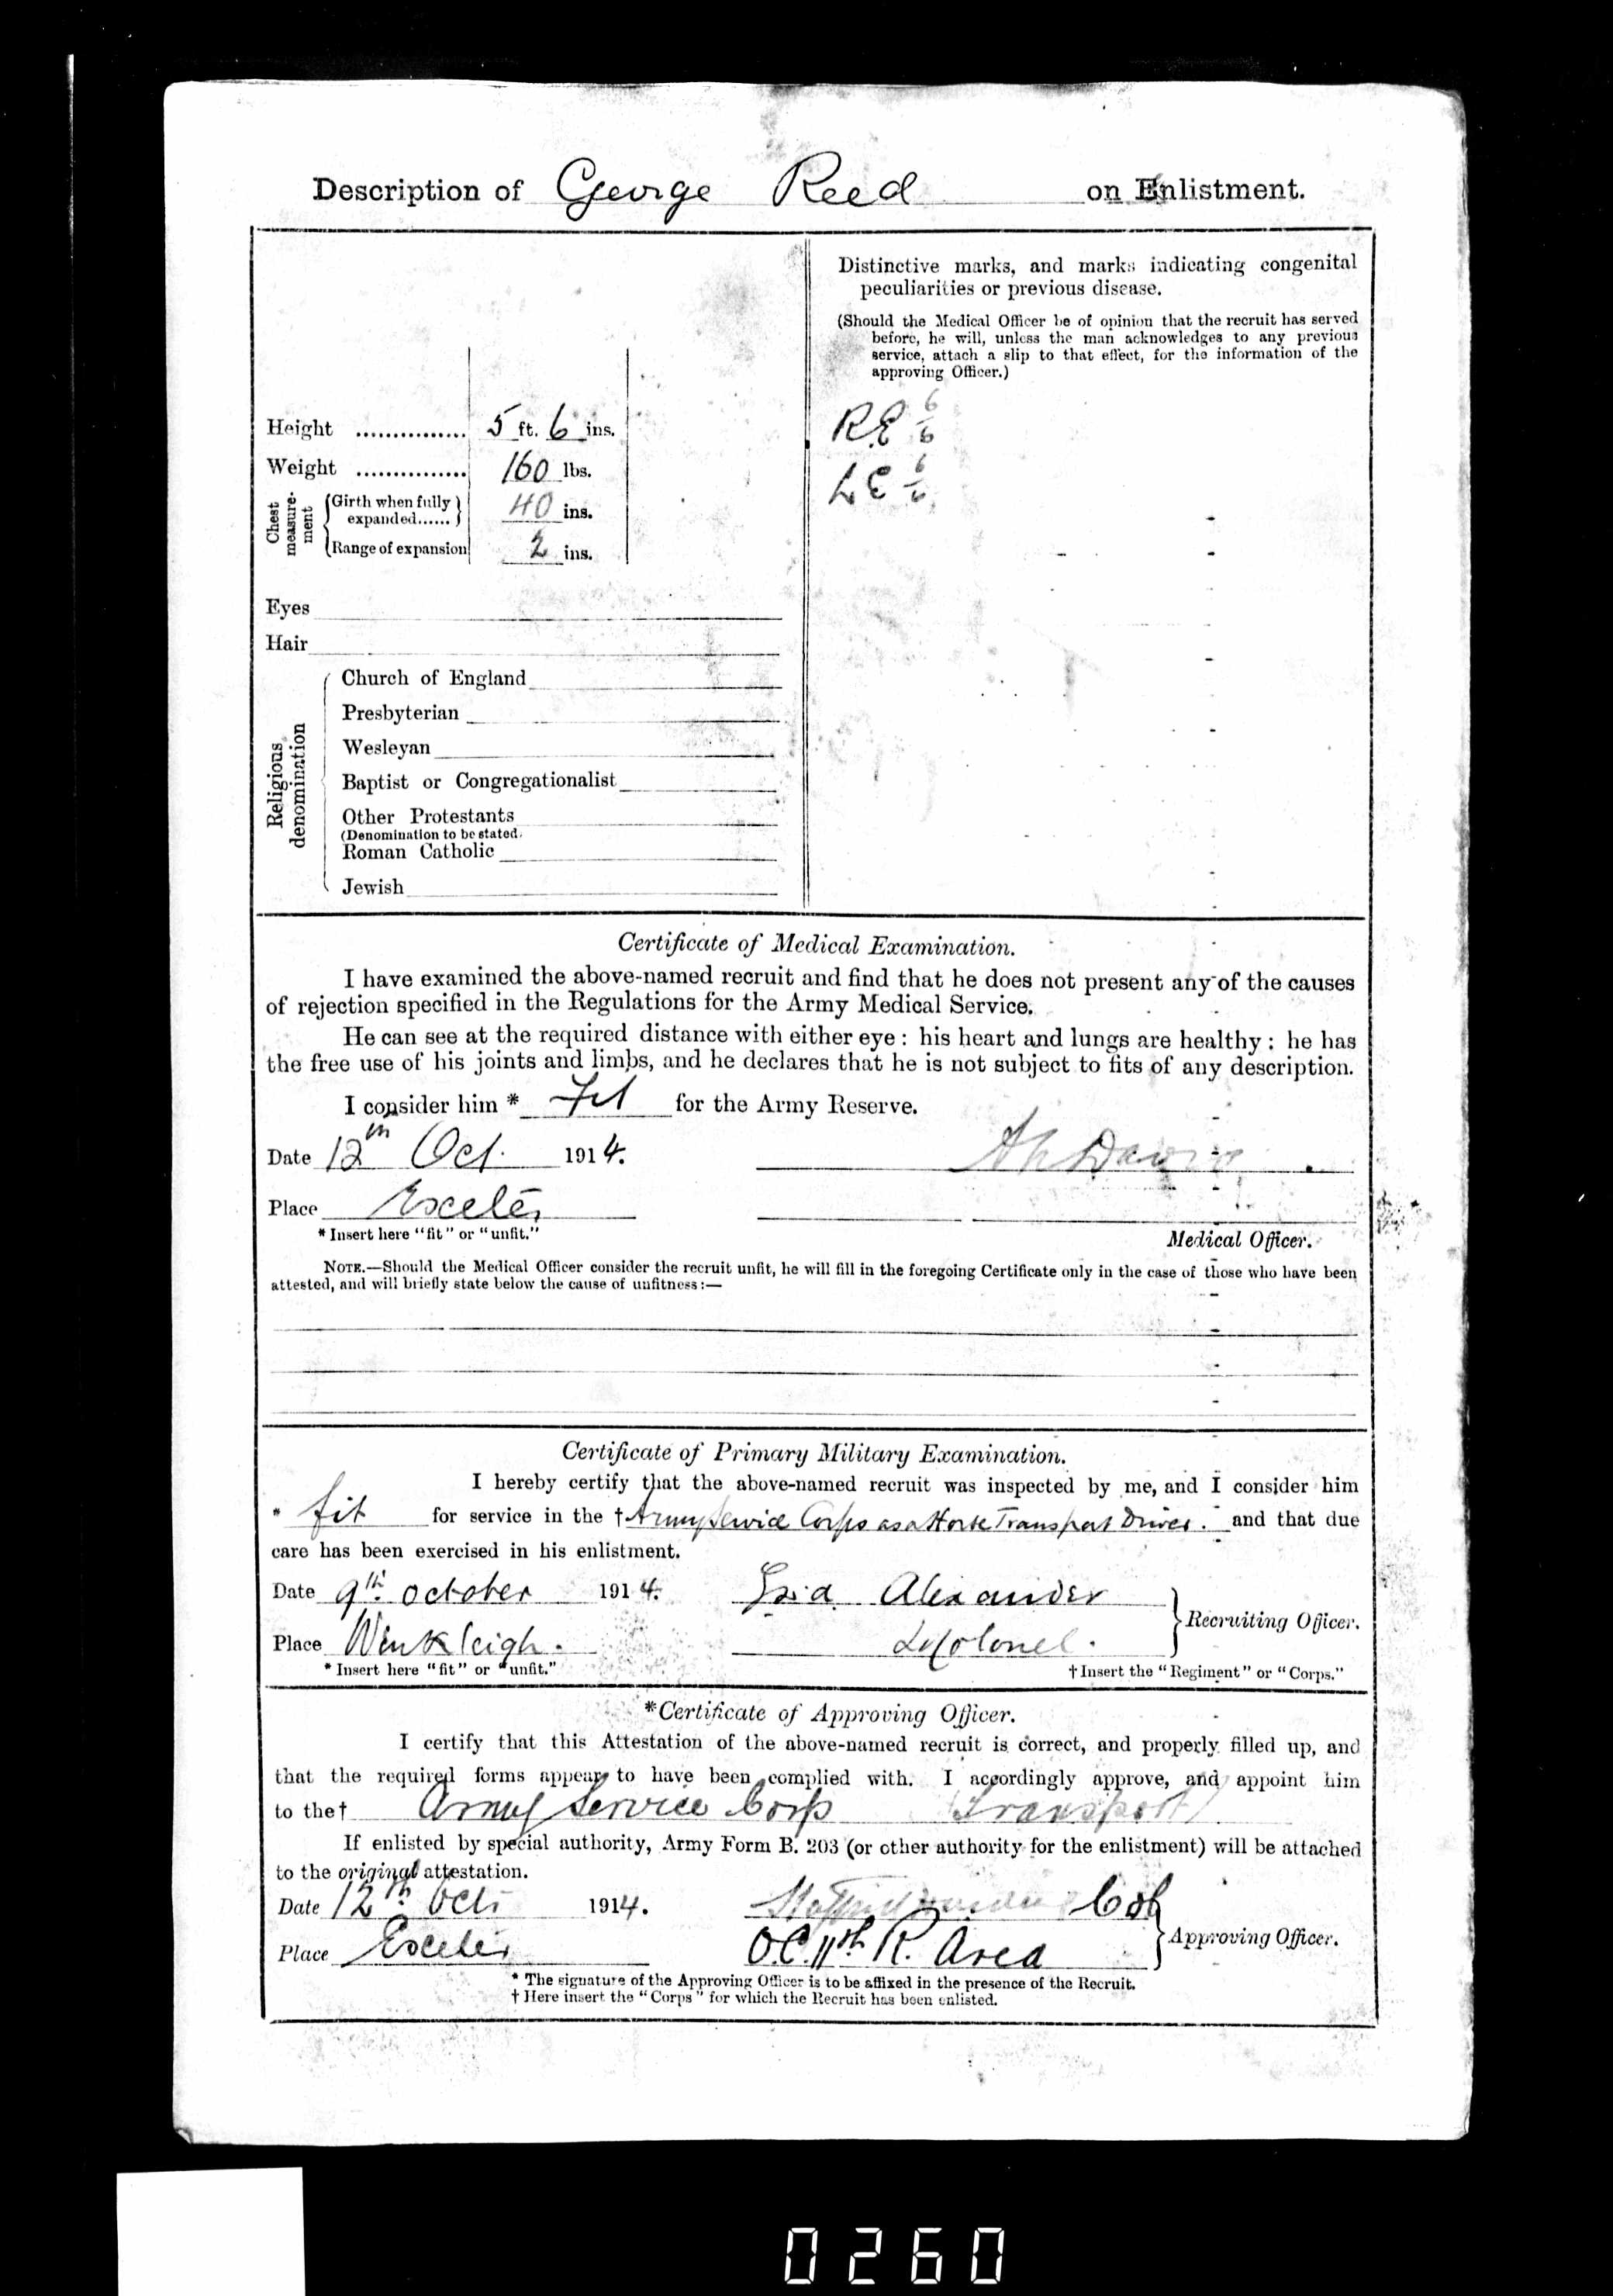 Description of George Reed on Enlistment.
Distinctive marks, and marks indicating congenital
peculiarities or previous disease.
(Should the Medical Officer be of opinion that the recruit has served
before, he will, unless the man acknowledges to any previous
service, attach a slip to that effect, for the information of the
approving Officer.)
RE 6/6
LE 6/6
Height ............... 5 ft. 6 ins.
Weight ............... 160 lbs.
Chest measurement
Girth when fully
expanded...... 40 ins.
Range of expansion 2 ins.
Eyes
Hair
Religious denomination
Church of England
Presbyterian
Wesleyan
Baptist or Congregationalist
Other Protestants
(Denomination to be stated.
Roman Catholic
Jewish
Certificate of Medical Examination.
I have examined the above-named recruit and find that he does not present any of the causes
of rejection specified in the Regulations for the Army Medical Service.
He can see at the required distance with either eye : his heart and lungs are healthy : he has
the free use of his joints and limbs, and he declares that he is not subject to fits of any description.
I consider him * Fit for the Army Reserve.
Date 12th Oct. 1914.
Place Exeter
* Insert here "fit" or "unfit."
Medical Officer.
NOTE.—Should the Medical Officer consider the recruit unfit, he will fill in the foregoing Certificate only in the case of those who have been
attested, and will briefly state below the cause of unfitness:—
Certificate of Primary Military Examination.
I hereby certify that the above-named recruit was inspected by me, and I consider him
* fit for service in the † Army Service Corps as a Horse Transport Driver. and that due
care has been exercised in his enlistment.
Date 9th October 1914. Alexander
Recruiting Officer.
Place Winkleigh. Lt Colonel.
* Insert here "fit" or "unfit." † Insert the "Regiment" or "Corps."
*Certificate of Approving Officer.
I certify that this Attestation of the above-named recruit is correct, and properly filled up, and
that the required forms appear to have been complied with. I accordingly approve, and appoint him
to the† Army Service Corp (Transport)
If enlisted by special authority, Army Form B. 203 (or other authority for the enlistment) will be attached
to the original attestation.
Date 12th Oct 1914. Col
Approving Officer.
Place Exeter O.C. 11th R. Area
* The signature of the Approving Officer is to be affixed in the presence of the Recruit.
† Here insert the "Corps" for which the Recruit has been enlisted.
0260